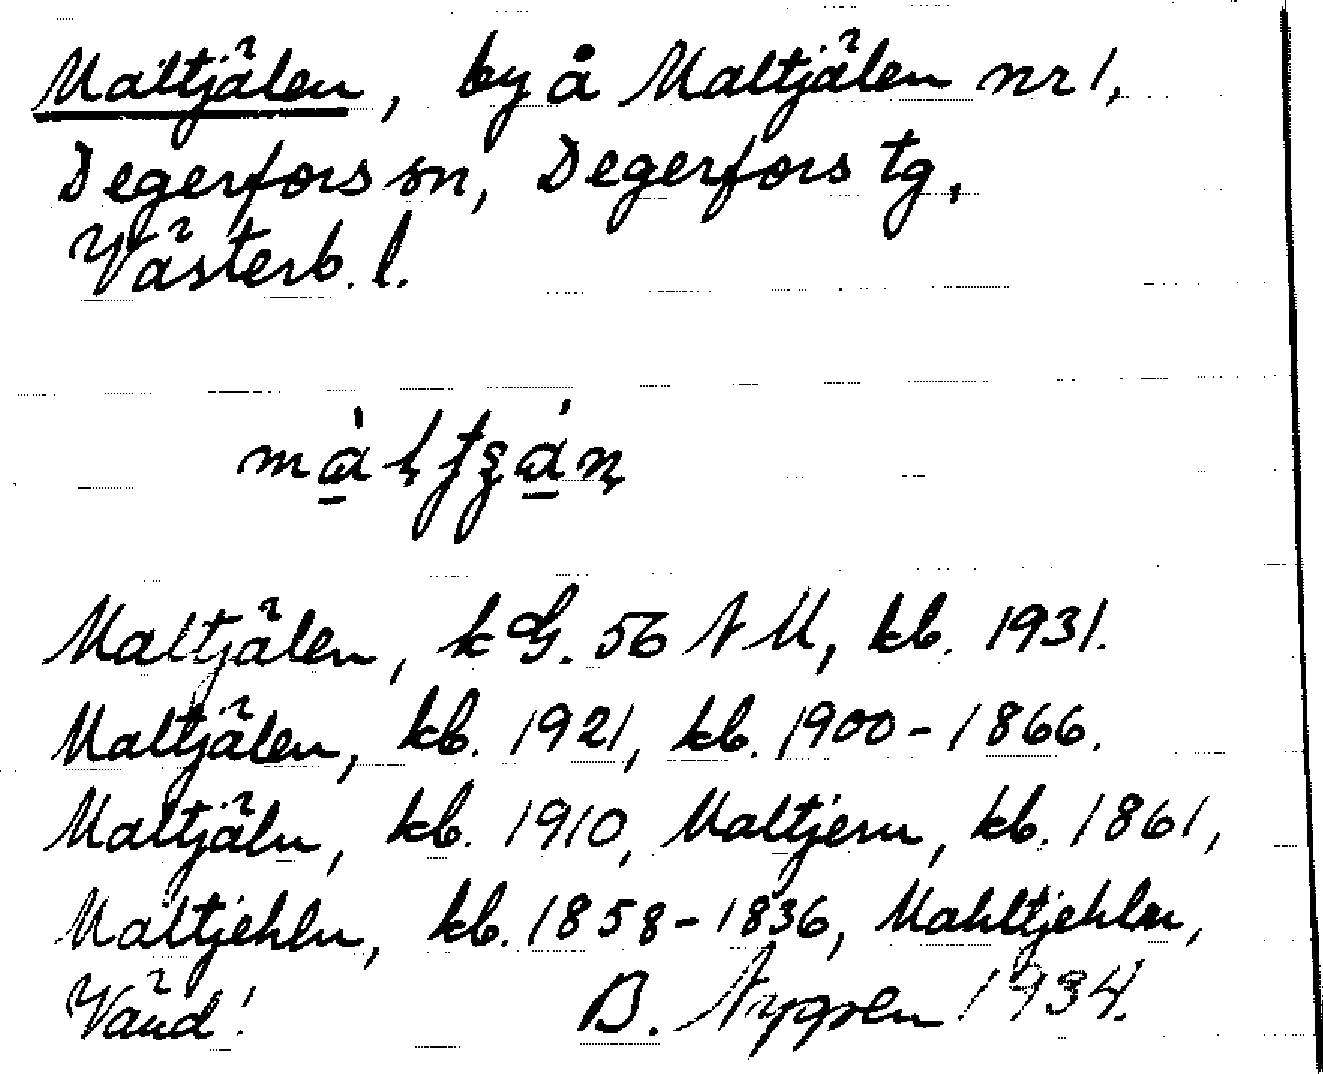 Maltjälen, by å Maltjälen nr 1,
Degerfors sn, Degerfors tg,
Västerb. l.
Maltjälen, kG. 56 NU, kb. 1931.
Maltjälen, kb. 1921, kb. 1900-1866.
Maltjäln, kb. 1910, Maltjern, kb. 1861,
Maltjehln, kb. 1858-1836, Mahltjehln,
Vänd! B. Nygren 1934.